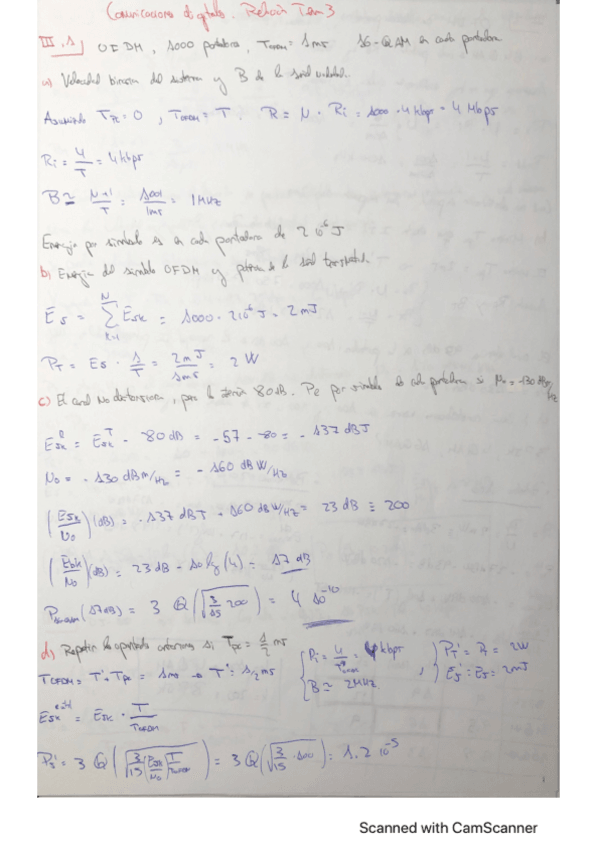 Comunicaciones digitales. Relación Tema 3
III.1) OFDM, 1000 portadoras, T_OFDM = 1ms 16-QAM en cada portadora
a) Velocidad binaria del sistema y B de la señal
Asumiendo T_PC = 0, T_OFDM = T. R = N · Ri = 1000 · 4 kbps = 4 Mbps
Ri = 4/T = 4 kbps
B ≃ N+1/T = 1001/1ms = 1 MHz
Energía por símbolo es en cada portadora de 2 10^-6 J
b) Energía del símbolo OFDM y potencia de la señal
Es = Σ_{k=1}^{N} Esk = 1000 · 2 10^-6 J = 2mJ
P_T = Es · 1/T = 2mJ/1ms = 2 W
c) El canal no distorsiona, pero la 80 dB. Pe por símbolo de cada portadora si N0 = -130 dBm/Hz
Esk^R = Esk^T - 80 dB = -57 - 80 = -137 dBJ
N0 = -130 dBm/Hz = -160 dBW/Hz
(Esk/N0)(dB) = -137 dBJ + 160 dBW/Hz = 23 dB ≡ 200
(Ebk/N0)(dB) = 23 dB - 10 log(4) = 17 dB
(17 dB) = 3 Q(√(3/15 200)) = 4 10^-10
d) Repetir los apartados anteriores si T_PC = 1/2 ms
T_OFDM = T' + T_PC = 1ms → T' = 1/2 ms
{ Ri = 4/T_OFDM = 4 kbps
B ≃ 2MHz
, { P_T' = P_T = 2W
Es' = Es = 2mJ
Esk = Esk · T/T_OFDM
Ps' = 3 Q(√(3/15 (Esk/N0) T/T_OFDM)) = 3 Q(√(3/15 · 100)) = 1.2 10^-5
1
Scanned with CamScanner